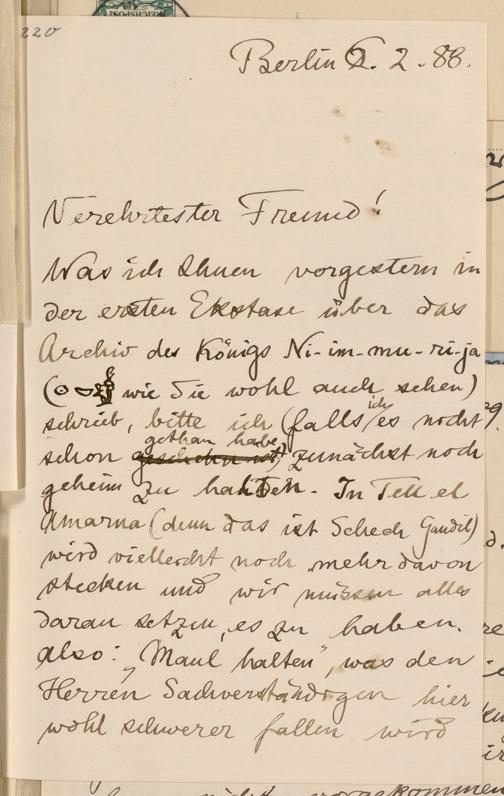 220
Berlin 2. 2. 88.
Verehrtester Freund!
Was ich Ihnen vorgestern in
der ersten Ekstase über das
Archiv des Königs Ni-im-mu-ri-ja
( wie Sie wohl auch sehen)
schrieb, bitte ich (falls ich es nicht
schon gethan habe) zunächst noch
geheim zu halten. In Tell el
Amarna (denn das ist Schech Gandil)
wird vielleicht noch mehr davon
stecken und wir müssen alles
daran setzen, es zu haben.
also: „Maul halten", was den
Herren Sachverständigen hier
wohl schwerer fallen wird